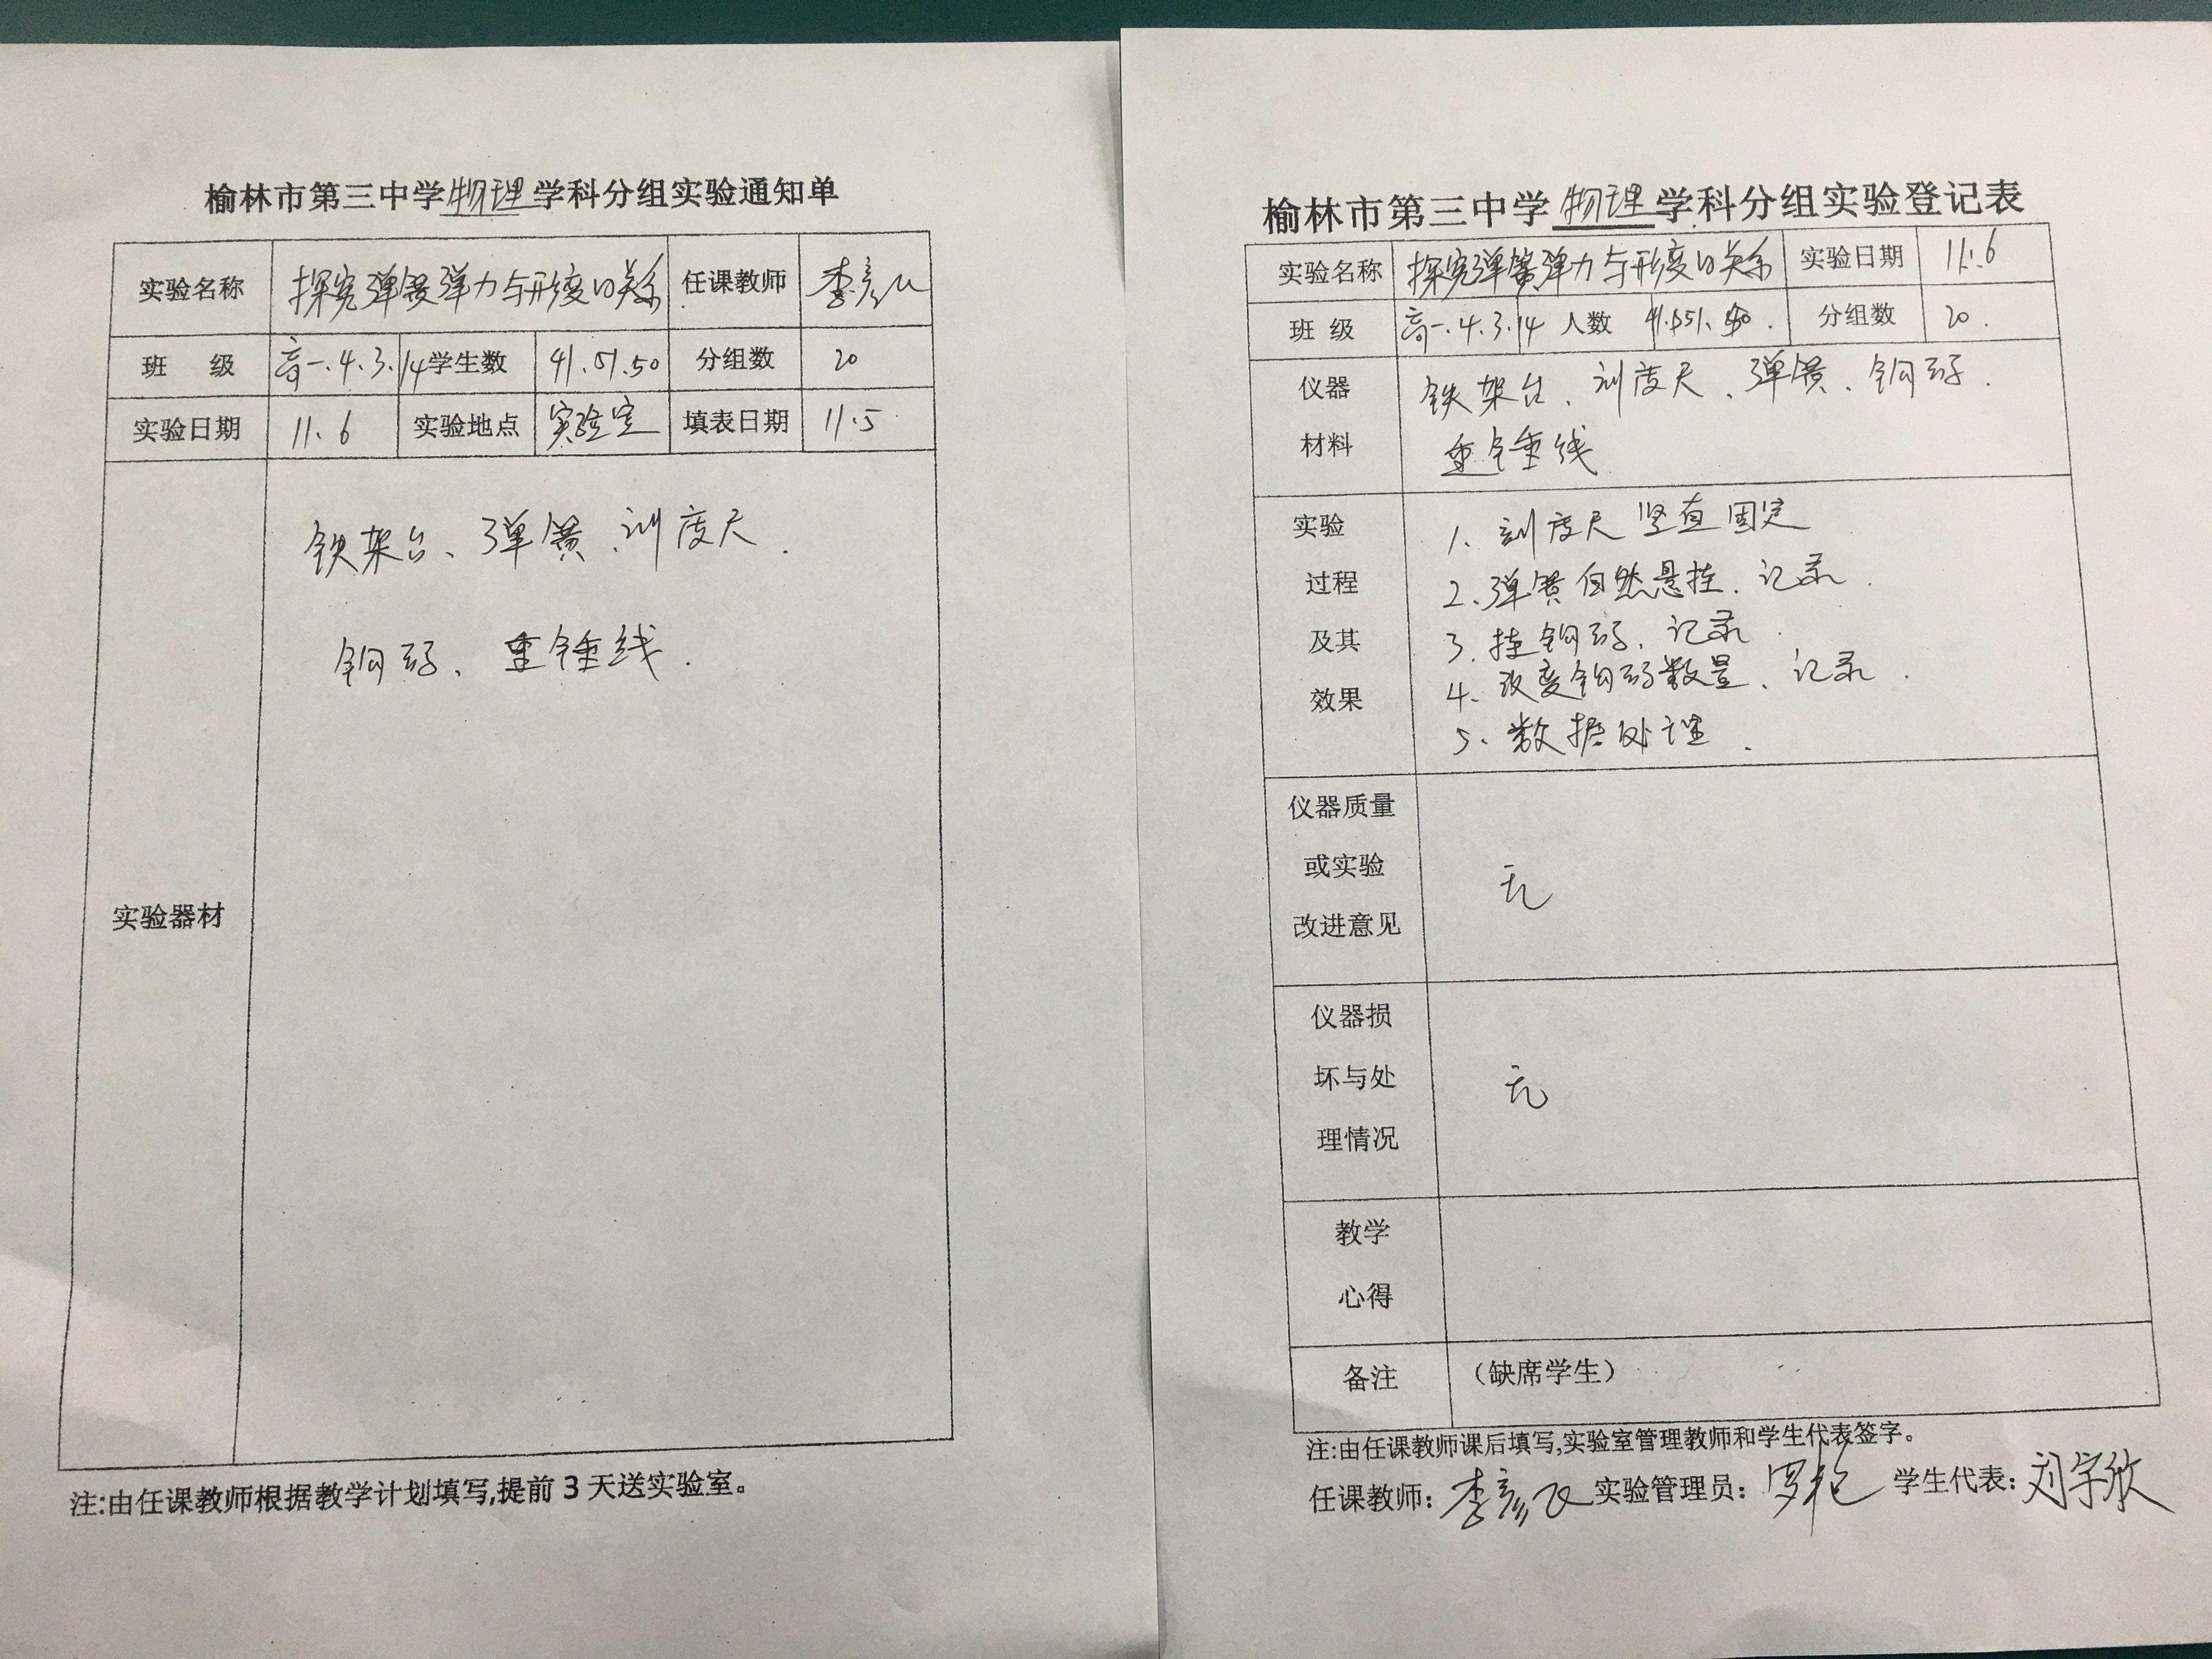 榆林市第三中学物理学科分组实验通知单
实验名称 探究弹簧弹力与形变的关系 任课教师 李彦
班 级 高一.4.3.14 学生数 41.51.50 分组数 20
实验日期 11.6 实验地点 实验室 填表日期 11.5
实验器材
铁架台、弹簧、刻度尺.
钩码、重锤线.
注:由任课教师根据教学计划填写,提前3天送实验室。
榆林市第三中学物理学科分组实验登记表
实验名称 探究弹簧弹力与形变的关系 实验日期 11.6
班 级 高一.4.3.14 人数 41.51.50. 分组数 20.
仪器
材料
铁架台、刻度尺、弹簧、钩码.
重锤线
实验
过程
及其
效果
1、刻度尺竖直固定
2、弹簧自然悬挂、记录.
3、挂钩码、记录.
4、改变钩码数量、记录.
5、数据处理.
仪器质量
或实验
改进意见
无
仪器损
坏与处
理情况
无
教学
心得
备注 （缺席学生）
注:由任课教师课后填写,实验室管理教师和学生代表签字。
任课教师: 李彦 实验管理员: 罗艳 学生代表: 刘宇欣